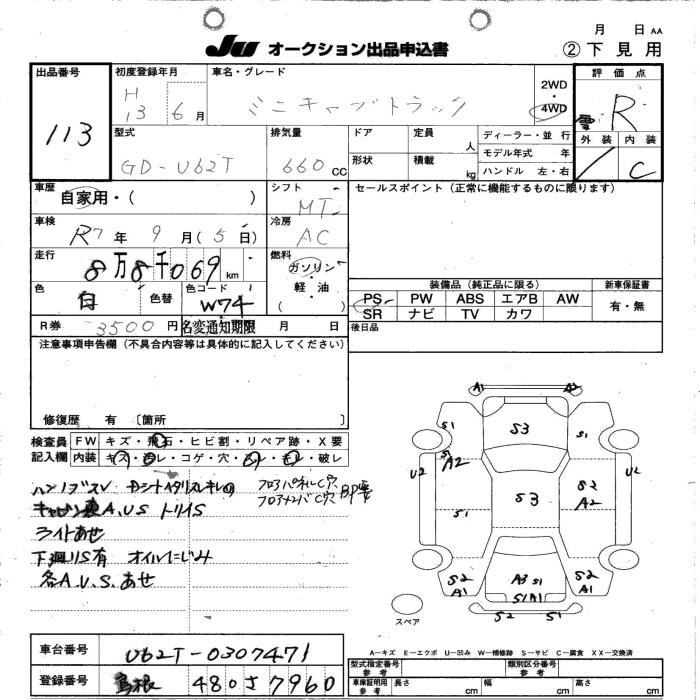 月 日 AA
JU オークション出品申込書
②下見用
出品番号
113
初度登録年月
H 13 6月
車名・グレード
ミニキャブトラック
2WD・4WD
評価点
R
外装 内装
C
型式
GD-U62T
排気量
660 CC
ドア
定員 人
形状
積載 kg
ディーラー・並行
モデル年式 年
ハンドル 左・右
車歴
自家用・( )
シフト
MT
セールスポイント(正常に機能するものに限ります)
車検
R7年 9月(5日)
冷房
AC
走行
8万8千069 km
燃料
ガソリン・軽油
( )
色
白
色替
色コード
W74
装備品(純正品に限る)
新車保証書
PS PW ABS エアB AW
SR ナビ TV カワ
有・無
R券
3500円
名変通知期限 月 日
後日品
注意事項申告欄(不具合内容等は具体的に記入してください)
修復歴 有 〔箇所 〕
検査員記入欄
FW キズ・飛石・ヒビ割・リペア跡・X要
内装 キズ・汚レ・コゲ・穴・スレ・モレ・破レ
フロアパネルC穴
フロアメンバC穴
BP要
A.U.S トリイS
ライトあせ
下廻りS有 オイルにじみ
各A.U.S.あせ
A1 A2
S1 S3 S1
S1 A2
U2 U2
S1 S3 S2 A2
S2 A1
A3 S1
S1A1
S2 A1
S2 S1
スペア
A-キズ E-エクボ U-凹み W-補修跡 S-サビ C-腐食 XX-交換済
車台番号
U62T-0307471
登録番号
島根 480 さ 7960
型式指定番号 参考
類別区分番号 参考
車庫証明用 参考
長さ cm 幅 cm 高さ cm